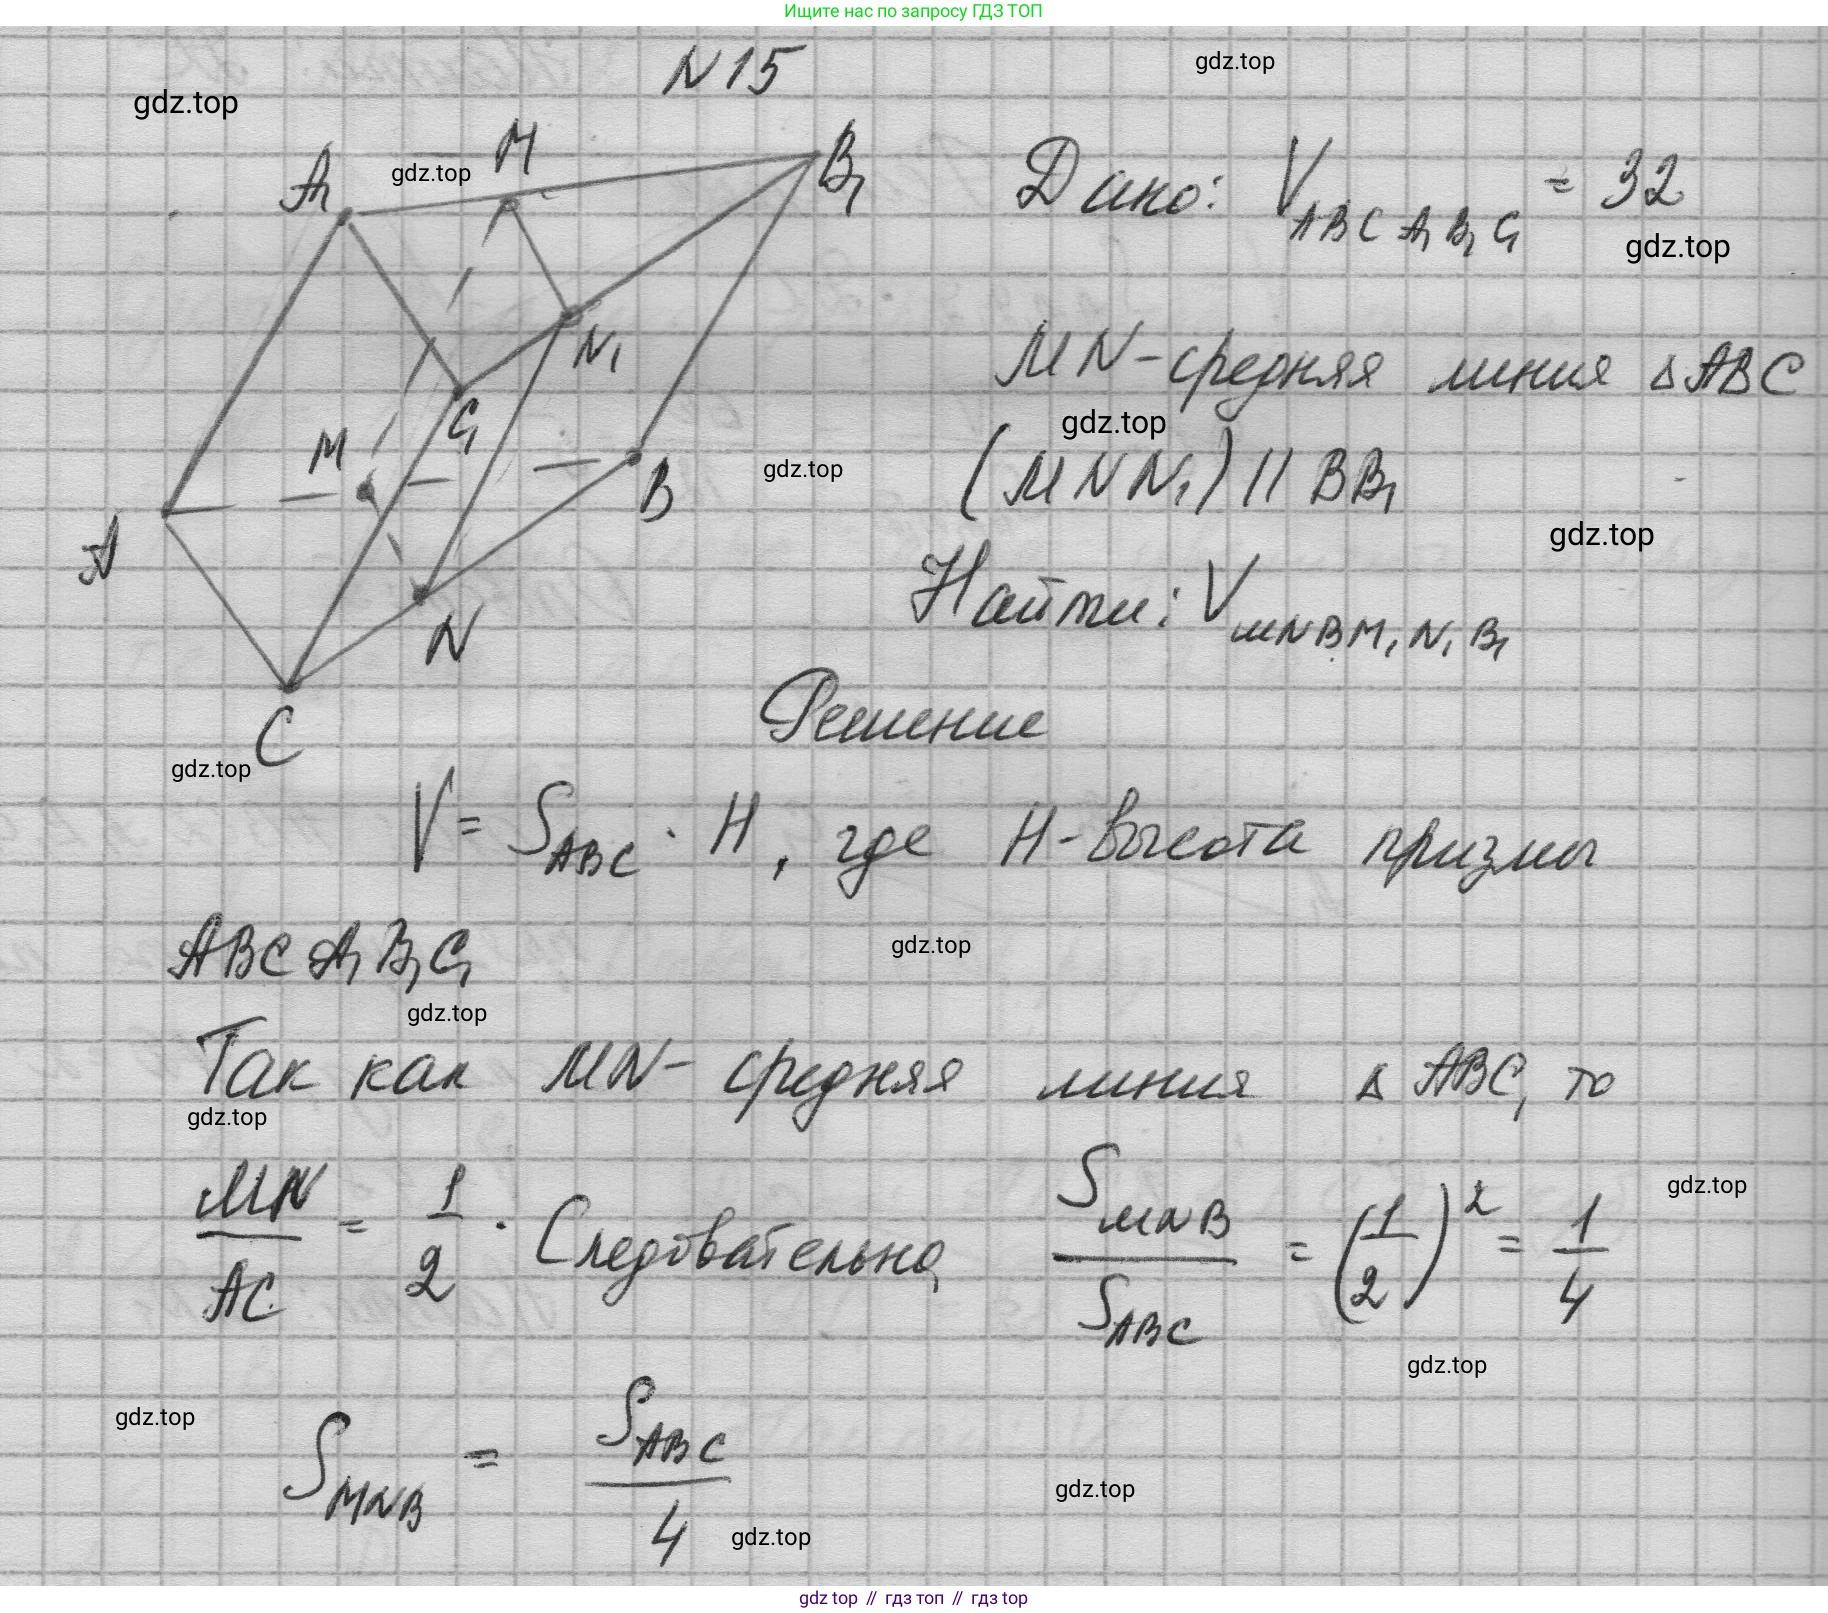 Ищите нас по запросу ГДЗ ТОП
N 15
gdz.top
gdz.top
gdz.top
A₁ M B₁
Дано: V ABCA₁B₁C₁ = 32
gdz.top
N₁
MN - средняя линия △ABC
gdz.top
C₁
M
B
gdz.top
(MNN₁) || BB₁
gdz.top
A
N
Найти: V MNBM₁N₁B₁
C
Решение
gdz.top
V = S ABC · H, где H - высота призмы
ABCA₁B₁C₁
gdz.top
gdz.top
Так как MN - средняя линия △ ABC, то
gdz.top
MN/AC = 1/2. Следовательно, S MNB / S ABC = (1/2)² = 1/4
gdz.top
gdz.top
gdz.top
S MNB = S ABC / 4
gdz.top
gdz.top
gdz top // гдз топ // гдз top